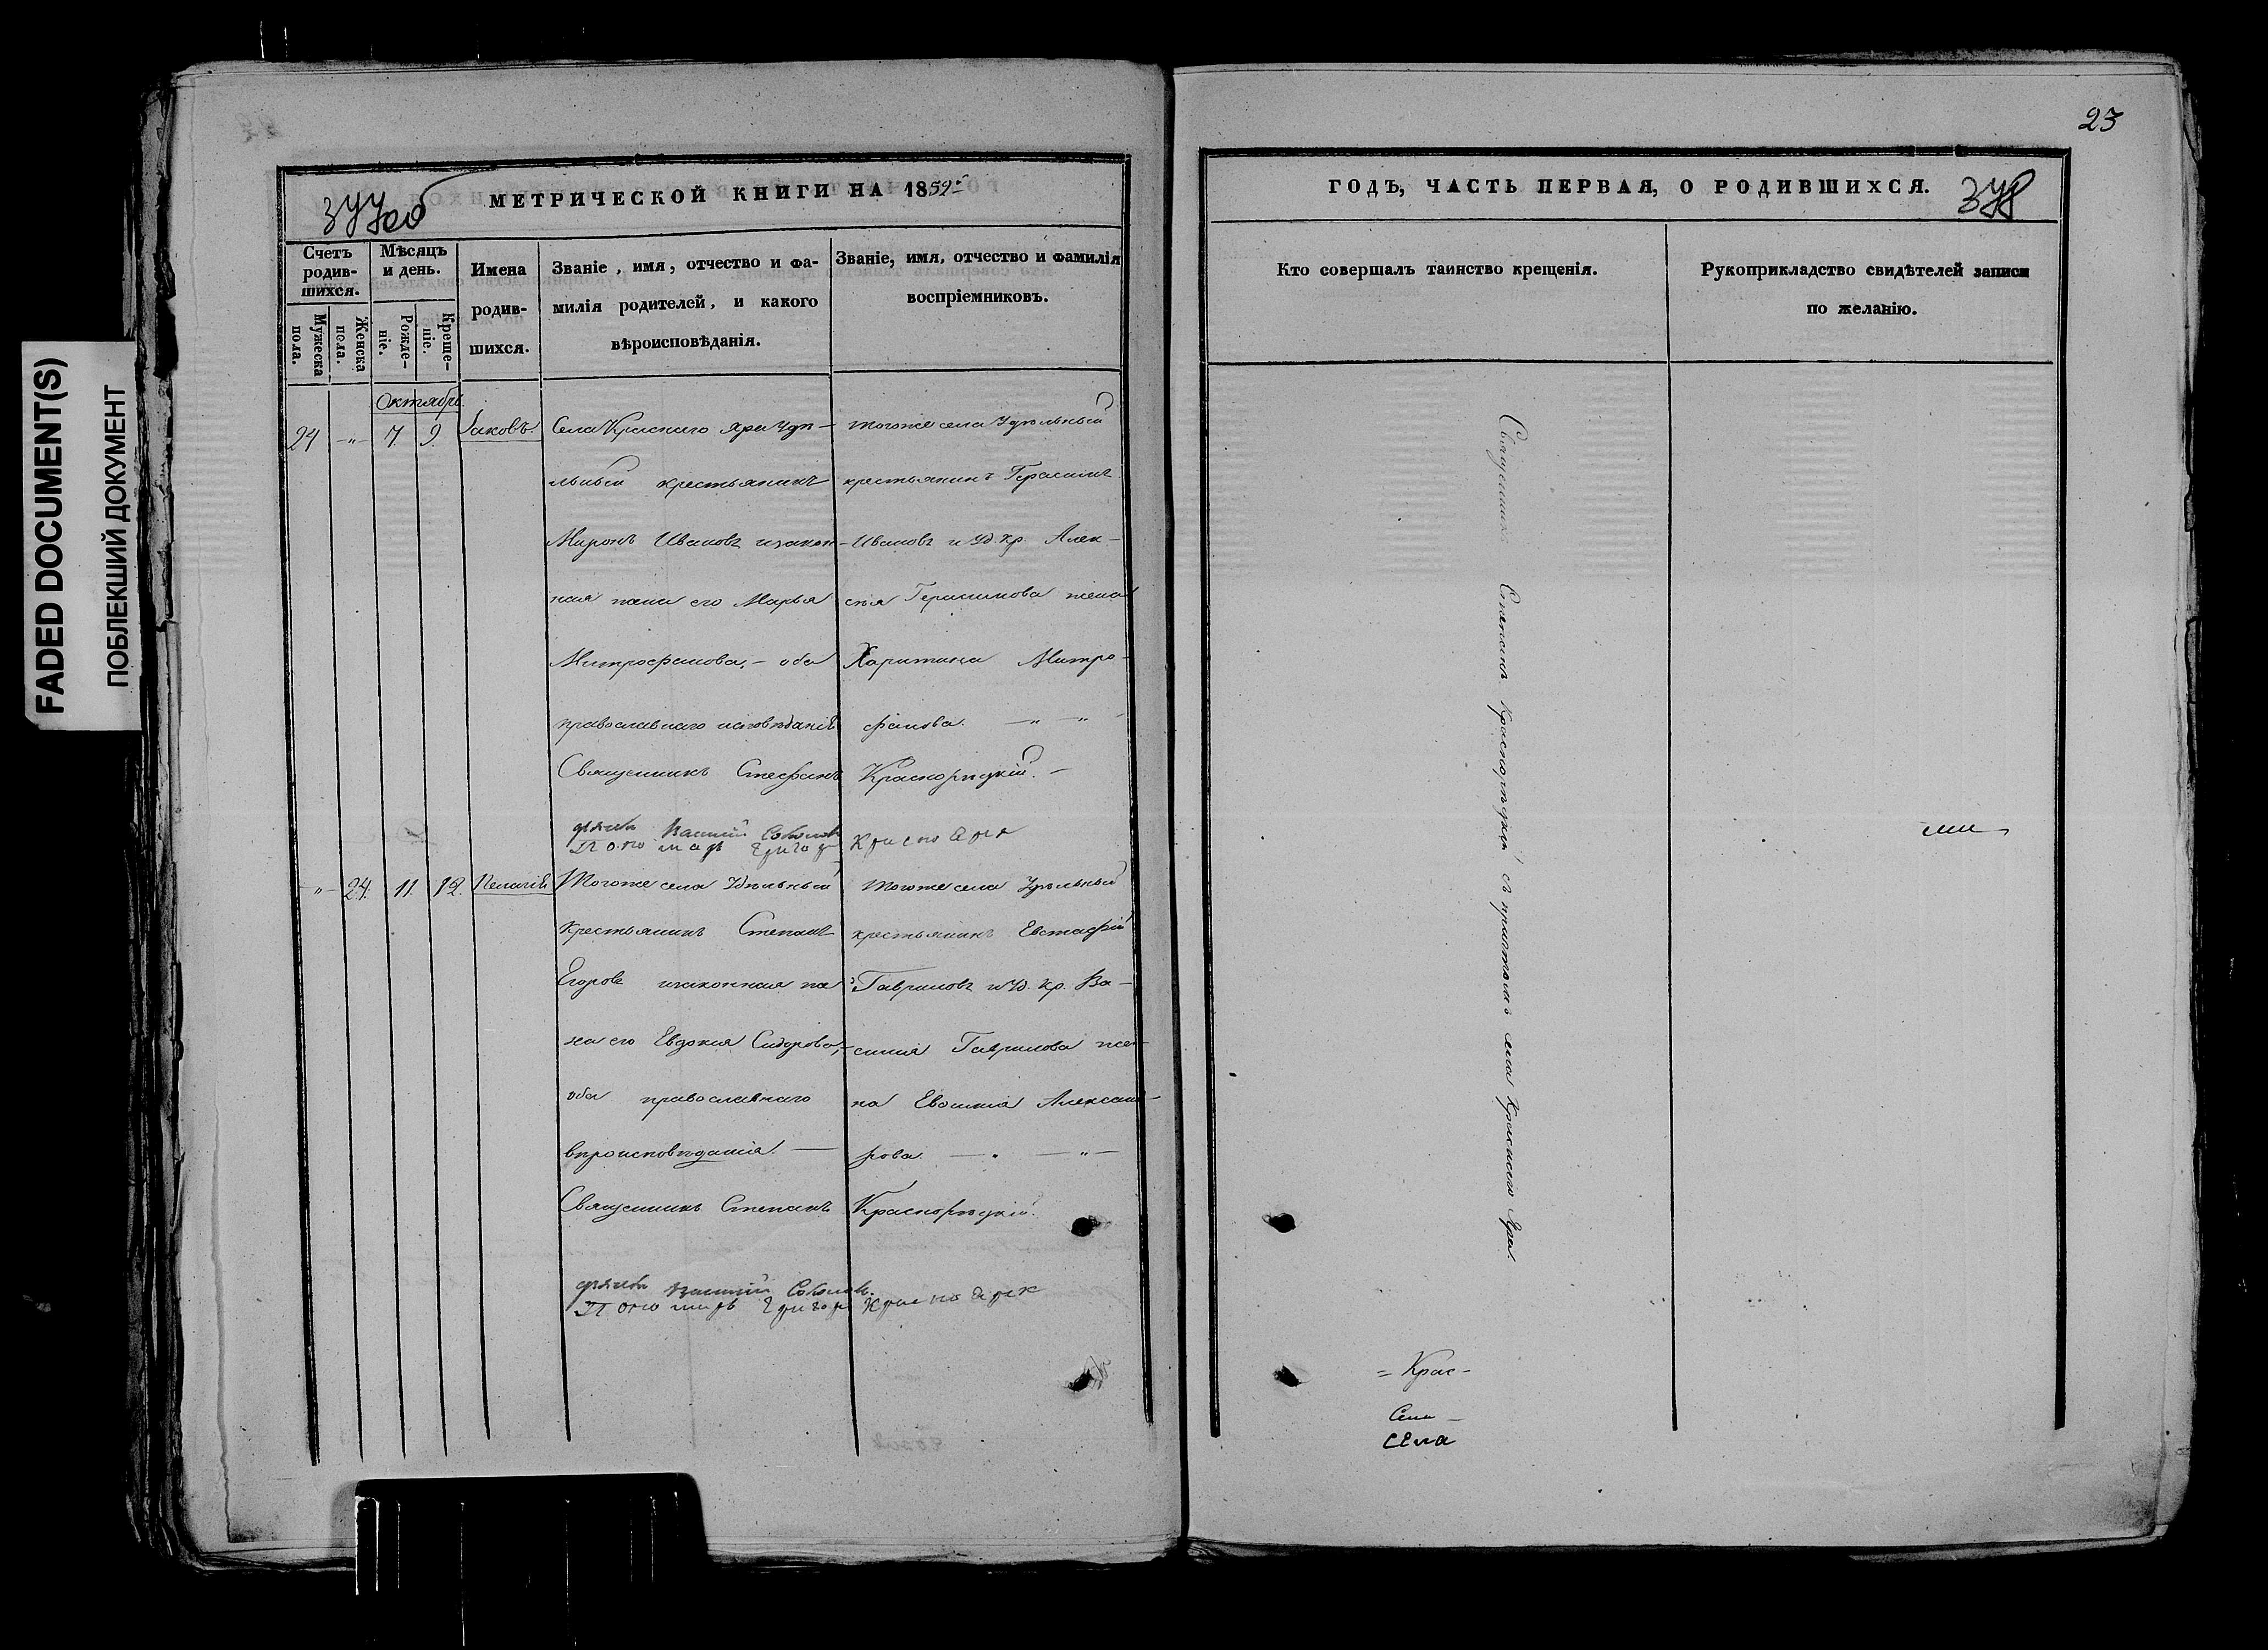 FADED DOCUMENT(S)
ПОБЛЕКШИЙ ДОКУМЕНТ
377об
МЕТРИЧЕСКОЙ КНИГИ НА 1859й
Счетъ родив-шихся.
Мужеска пола.
Женска пола.
Мѣсяцъ и день.
Рожде-ніе.
Креще-ніе.
Имена
родив-
шихся.
Званіе, имя, отчество и фа-
милія родителей, и какого
вѣроисповѣданія.
Званіе, имя, отчество и фамилія
воспріемниковъ.
Октябрь.
24 -"- 7. 9. Іаковъ.
Села Краснаго Яра Удѣ-
льный крестьянинъ
Миронъ Ивановъ изакон-
ная жена его Марья
Митрофанова, - оба
православнаго исповѣданія
Тогоже села Удѣльный
крестьянинъ Герасимъ
Ивановъ и Уд. кр. Алек-
сѣя Герасимова жена
Харитина Митро-
фанова. -"-"-
Священникъ Стефанъ Краснорѣцкій. -
Пономарь Григор Красно Ярк
-"- 24. 11. 12. Пелагія
Тогоже села Удѣльный
крестьянинъ Степанъ
Егоровъ изаконная же
на его Евдокия Сидорова,-
оба православнаго
вѣроисповѣдания. -
Тогоже села Удѣльный
крестьянинъ Евстафій
Гавриловъ и Уд. кр. Ва-
силия Гаврилова же-
на Евдокия Алексан-
рова. -"-"-
Священникъ Степанъ Краснорѣцкій.
Пономарь Григор Красно Ярк
23
ГОДЪ, ЧАСТЬ ПЕРВАЯ, О РОДИВШИХСЯ.
378
Кто совершалъ таинство крещенія.
Рукоприкладство свидѣтелей записи
по желанію.
Священникъ Степанъ Краснорѣцкій съ причтомъ села Краснаго Яра.
= Крас-
Села